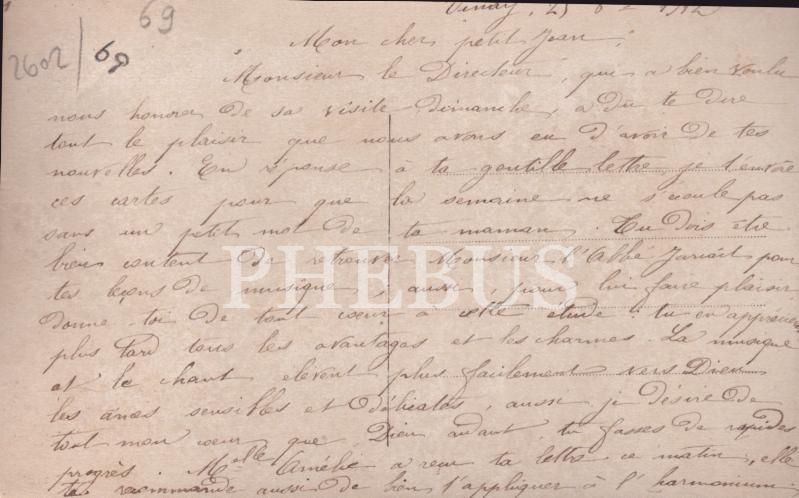 69
2602/69
Mon cher petit Jean,
Monsieur le Directeur, qui a bien voulu
nous honorer de sa visite dimanche, a du te dire
tout le plaisir que nous avons eu d'avoir de tes
nouvelles. En réponse à ta gentille lettre, je t'envoie
ces cartes pour que la semaine ne s'écoule pas
sans un petit mot de ta maman. Tu dois être
bien content de retrouver Monsieur l'Abbé pour
tes leçons de musique ; aussi, pour lui faire plaisir
donne-toi de tout cœur à cette étude : tu en apprécieras
plus tard tous les avantages et les charmes. La musique
et le chant elevent plus facilement vers Dieu
les âmes sensibles et délicates, aussi je désire de
tout mon cœur que, Dieu aidant, tu fasses de rapides
progrès. Melle Amélie a reçu ta lettre ce matin, elle
te recommande aussi de bien t'appliquer à l'harmonium.
PHEBUS